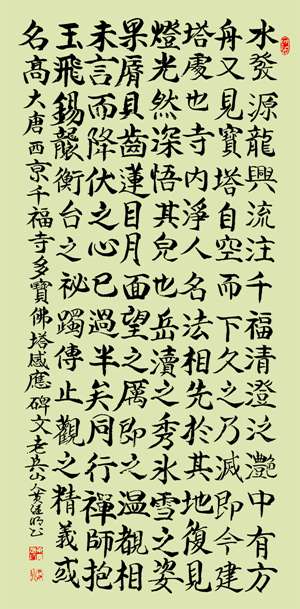 水發源龍興流注千福清澄泛灩中有方
舟又見寶塔自空而下久之乃滅即今建
塔處也寺內淨人名法相先於其地復見
燈光然深悟其皃也岳瀆之秀冰雪之姿
果脣貝齒蓮目月面望之厲即之溫觀相
未言而降伏之心已過半矣同行禪師抱
玉飛錫襲衡台之祕躅傳止觀之精義或
名高大唐西京千福寺多寶佛塔感應碑文